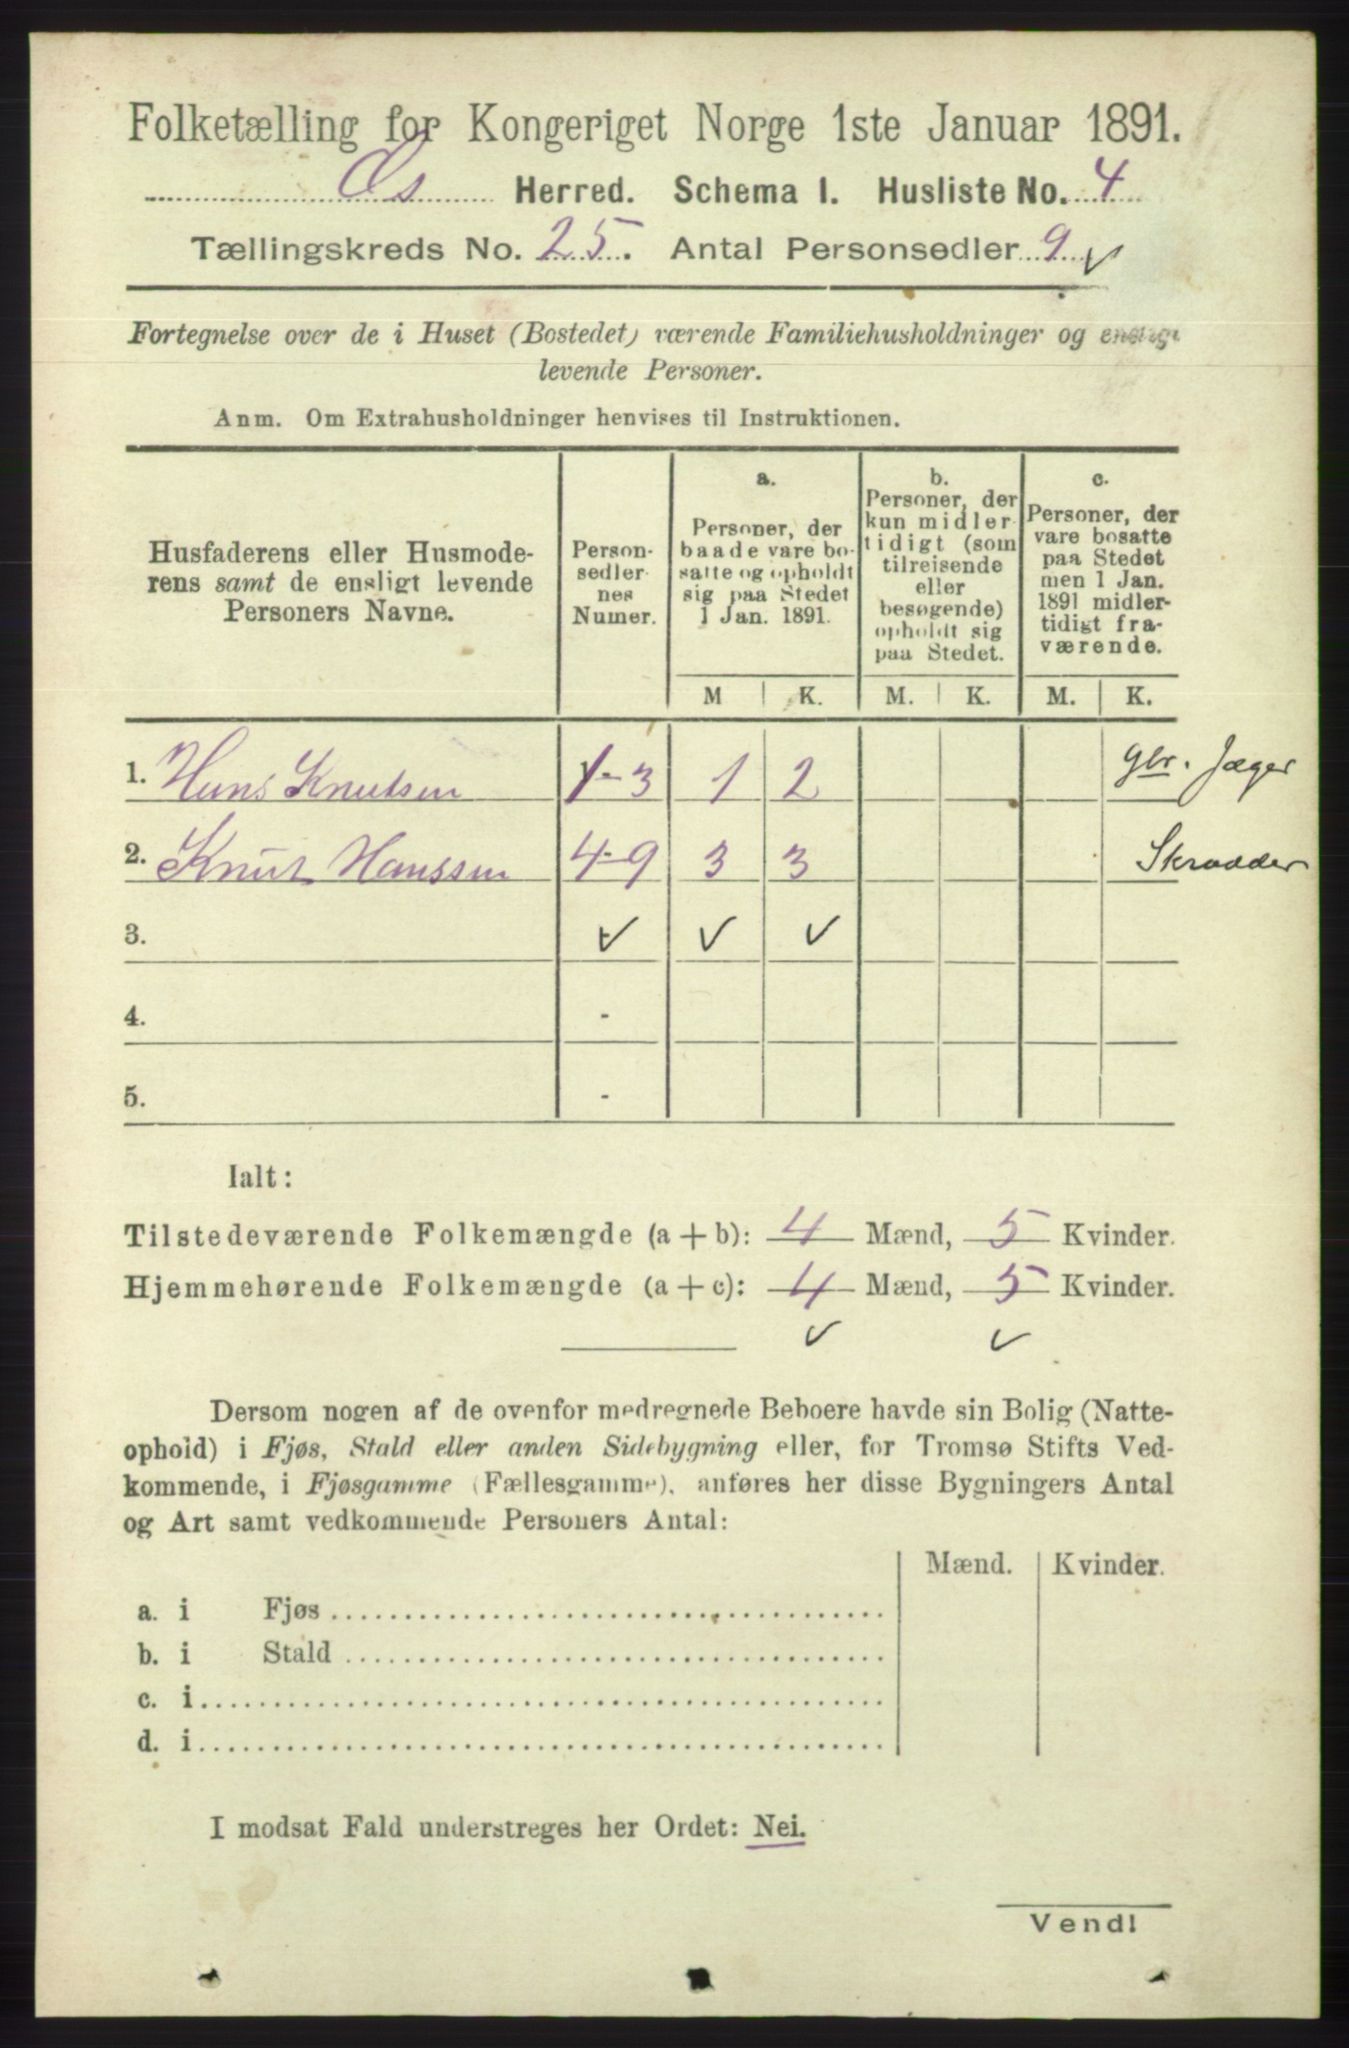 Folketælling for Kongeriget Norge 1ste Januar 1891.
Os Herred. Schema I. Husliste No. 4
Tællingskreds No. 25. Antal Personsedler 9 ✓
Fortegnelse over de i Huset (Bostedet) værende Familiehusholdninger og enslige
levende Personer.
Anm. Om Extrahusholdninger henvises til Instruktionen.
Husfaderens eller Husmode-
rens samt de ensligt levende
Personers Navne.
Person-
sedler
nes
Numer.
a.
Personer, der
baade vare bo-
satte og opholdt
sig paa Stedet
1 Jan. 1891.
b.
Personer, der
kun midler
tidigt (som
tilreisende
eller
besøgende)
opholdt sig
paa Stedet.
c.
Personer, der
vare bosatte
paa Stedet
men 1 Jan.
1891 midler-
tidigt fra-
værende.
M K. M. K. M. K.
1. Hans Knutsen 1-3 1 2 gbr. Jæger
2. Knut Hanssen 4-9 3 3 Skrædder
3. - ✓ ✓ ✓
4. -
5. -
Ialt:
Tilstedeværende Folkemængde (a + b): 4 Mænd, 5 Kvinder.
Hjemmehørende Folkemængde (a + c): 4 Mænd, 5 Kvinder.
✓ ✓
Dersom nogen af de ovenfor medregnede Beboere havde sin Bolig (Natte-
ophold) i Fjøs, Stald eller anden Sidebygning eller, for Tromsø Stifts Ved-
kommende, i Fjøsgamme (Fællesgamme), anføres her disse Bygningers Antal
og Art samt vedkommende Personers Antal:
Mænd. Kvinder.
a. i Fjøs
b. i Stald
c. i
d. i
I modsat Fald understreges her Ordet: Nei.
Vend!